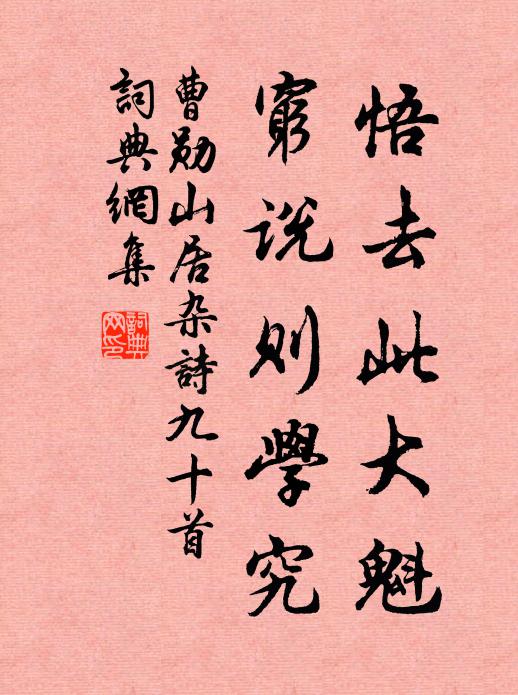 悟去此大魁
窮说则學究
曹勋山居杂詩九十首
詞典網集
詞典
网印